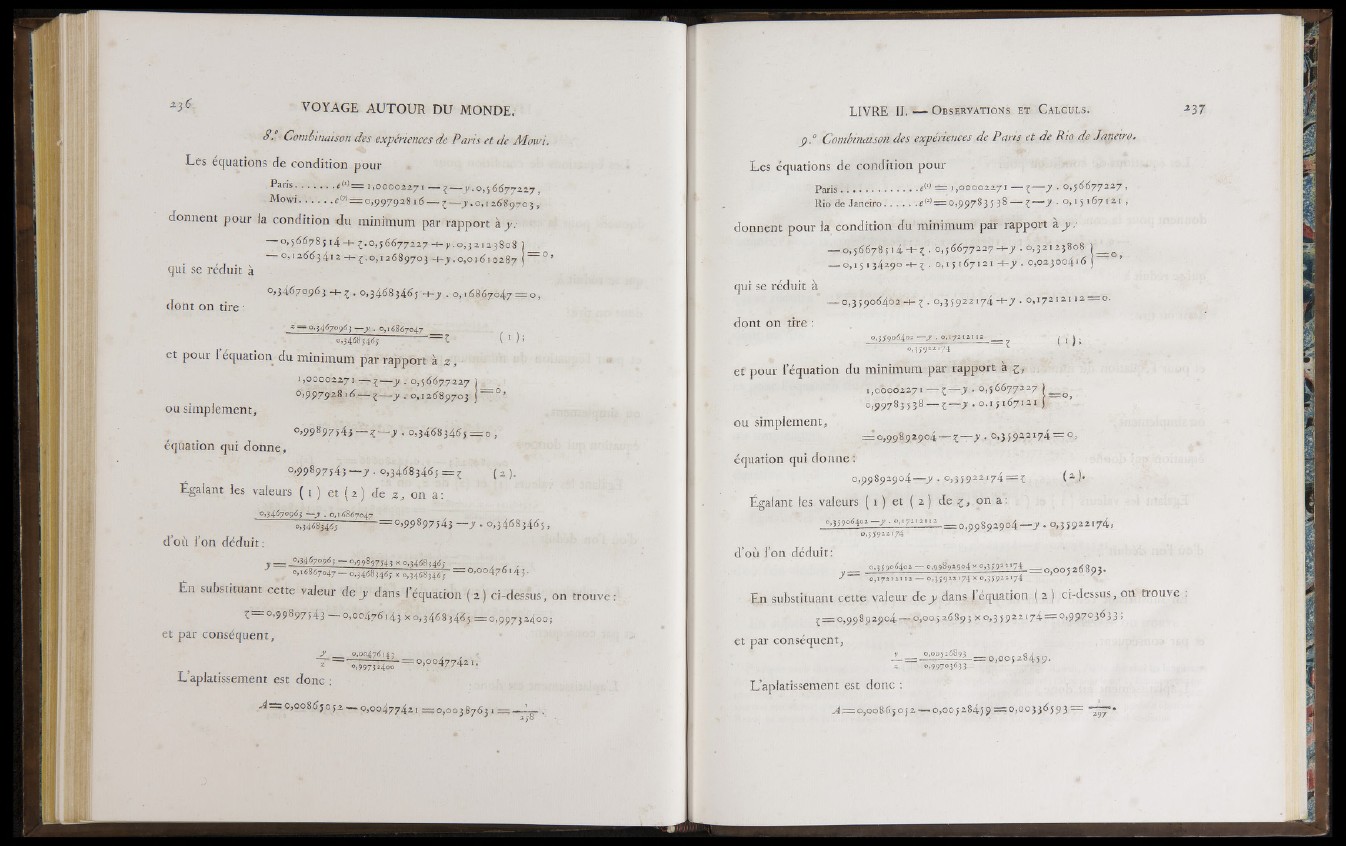 236 VOYAGE AUTOUR DU MONDE.
8.° Combinaison des expériences de Paris et de Mowi.
Les équations de condition pour
Paris.......e⁽¹⁾ = 1,00002271 — ζ — y. 0,56677227,
Mowi......e⁽²⁾ = 0,99792816 — ζ — y. 0,12689703,
donnent pour la condition du minimum par rapport à y:
— 0,56678514 + ζ. 0,56677227 + y. 0,32123808 }
— 0,12663412 + ζ. 0,12689703 + y. 0,01610287 } = 0,
qui se réduit à
0,34670963 + ζ. 0,34683465 + y. 0,16867047 = 0,
dont on tire :
z = 0,34670963 — y. 0,16867047 / 0,34683465 = ζ (1);
et pour l'équation du minimum par rapport à z,
1,00002271 — ζ — y. 0,56677227 }
0,99792816 — ζ — y. 0,12689703 } = 0,
ou simplement,
0,99897543 — ζ — y. 0,34683465 = 0,
équation qui donne,
0,99897543 — y. 0,34683465 = ζ (2).
Égalant les valeurs (1) et (2) de z, on a:
0,34670963 — y. 0,16867047 / 0,34683465 = 0,99897543 — y. 0,34683465,
d'où l'on déduit:
y = 0,34670963 — 0,99897543 × 0,34683465 / 0,16867047 — 0,34683465 × 0,34683465 = 0,00476143.
En substituant cette valeur de y dans l'équation (2) ci-dessus, on trouve:
ζ = 0,99897543 — 0,00476143 × 0,34683465 = 0,99732400;
et par conséquent,
y / z = 0,00476143 / 0,99732400 = 0,00477421.
L'aplatissement est donc :
A = 0,00865052 — 0,00477421 = 0,00387631 = 1 / 258.
LIVRE II. — OBSERVATIONS ET CALCULS. 237
9.° Combinaison des expériences de Paris et de Rio de Janeiro.
Les équations de condition pour
Paris.............e⁽¹⁾ = 1,00002271 — ζ — y. 0,56677227,
Rio de Janeiro......e⁽²⁾ = 0,99783538 — ζ — y. 0,15167121,
donnent pour la condition du minimum par rapport à y:
— 0,56678514 + ζ. 0,56677227 + y. 0,32123808 }
— 0,15134290 + ζ. 0,15167121 + y. 0,02300416 } = 0,
qui se réduit à
— 0,35906402 + ζ. 0,35922174 + y. 0,17212112 = 0.
dont on tire :
0,35906402 — y. 0,17212112 / 0,35922174 = ζ (1);
et pour l'équation du minimum par rapport à ζ,
1,00002271 — ζ — y. 0,56677227 }
0,99783538 — ζ — y. 0,15167121 } = 0,
ou simplement,
= 0,99892904 — ζ — y. 0,35922174 = 0,
équation qui donne :
0,99892904 — y. 0,35922174 = ζ (2).
Égalant les valeurs (1) et (2) de ζ, on a:
0,35906402 — y. 0,17212112 / 0,35922174 = 0,99892904 — y. 0,35922174,
d'où l'on déduit:
y = 0,35906402 — 0,99892904 × 0,35922174 / 0,17212112 — 0,35922174 × 0,35922174 = 0,00526893.
En substituant cette valeur de y dans l'équation (2) ci-dessus, on trouve :
ζ = 0,99892904 — 0,00526893 × 0,35922174 = 0,99703633;
et par conséquent,
y / z = 0,00526893 / 0,99703633 = 0,00528459.
L'aplatissement est donc :
A = 0,00865052 — 0,00528459 = 0,00336593 = 1 / 297.